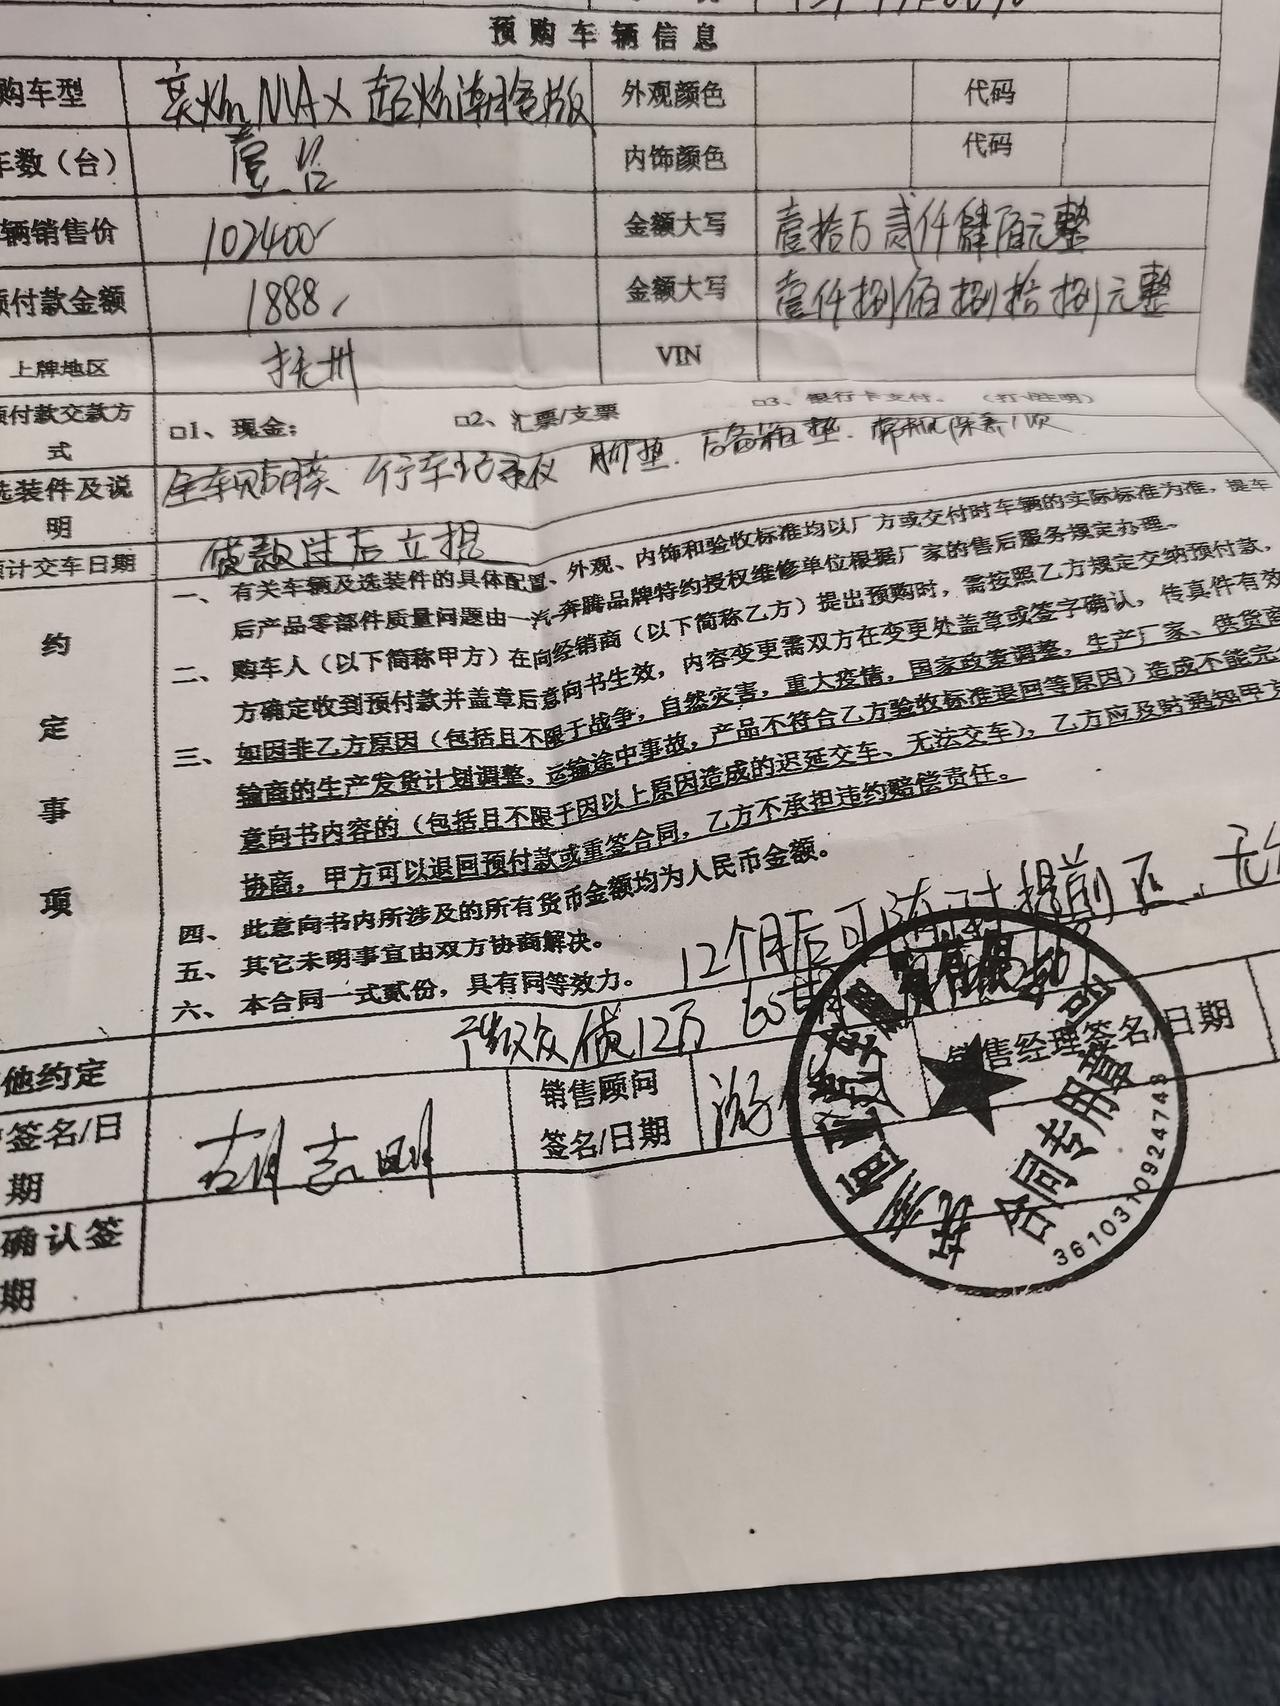 预购车辆信息
购车型 奕炫MAX 起炫潮绘版 外观颜色 代码
车数（台） 壹台 内饰颜色 代码
辆销售价 102400 金额大写 壹拾万贰仟肆佰元整
预付款金额 1888 金额大写 壹仟捌佰捌拾捌元整
上牌地区 抚州 VIN
预付款交款方式 □1、现金； □2、汇票/支票 □3、银行卡支付。
选装件及说明 全车贴膜 行车记录仪 脚垫．后备箱垫．常规保养1次
预计交车日期 贷款过后立提
约定事项
一、有关车辆及选装件的具体配置、外观、内饰和验收标准均以厂方或交付时车辆的实际标准为准，提车
后产品零部件质量问题由一汽-奔腾品牌特约授权维修单位根据厂家的售后服务规定办理。
二、购车人（以下简称甲方）在向经销商（以下简称乙方）提出预购时，需按照乙方规定交纳预付款，
方确定收到预付款并盖章后意向书生效，内容变更需双方在变更处盖章或签字确认，传真件有效
三、如因非乙方原因（包括且不限于战争，自然灾害，重大疫情，国家政策调整，生产厂家、供货商
输商的生产发货计划调整，运输途中事故，产品不符合乙方验收标准退回等原因）造成不能完
意向书内容的（包括且不限于因以上原因造成的迟延交车、无法交车），乙方应及时通知甲方
协商，甲方可以退回预付款或重签合同，乙方不承担违约赔偿责任。
四、此意向书内所涉及的所有货币金额均为人民币金额。
五、其它未明事宜由双方协商解决。
六、本合同一式贰份，具有同等效力。
12个月后可随时提前还，无
他约定 贷12万 60期
签名/日期 胡志明 销售顾问签名/日期 游 销售经理签名/日期
确认签
期
抚州
合同专用章
3610310924743